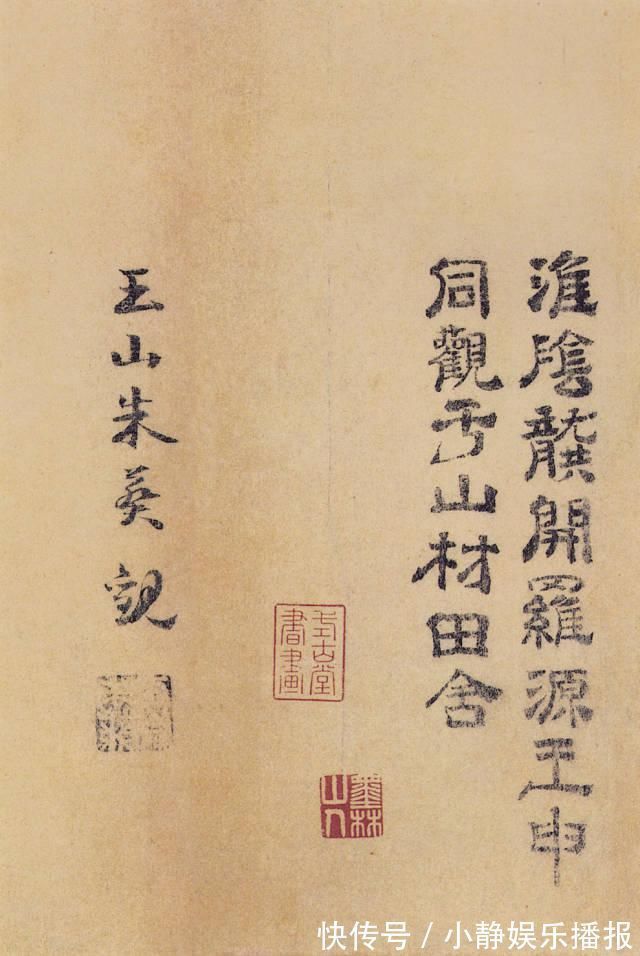 淮陰龔開羅源王申
同觀于山材田舍
式古堂
書畫
墨林
山人
王山朱英觀
快传号/小静娱乐播报